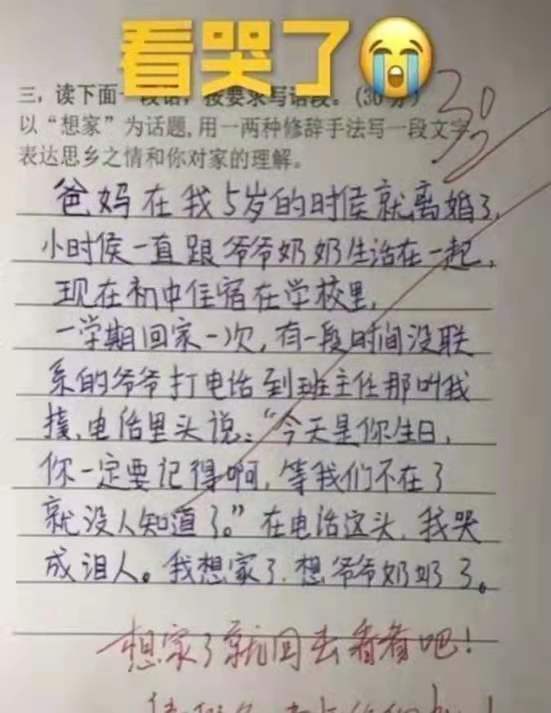 看哭了
三，读下面一段话，按要求写语段。(30分)
30
以“想家”为话题,用一两种修辞手法写一段文字
表达思乡之情和你对家的理解。
爸妈在我5岁的时侯就离婚了,
小时侯一直跟爷爷奶奶生活在一起,
现在初中住宿在学校里,
一学期回家一次,有一段时间没联
系的爷爷打电话到班主任那叫我
接,电话里头说:“今天是你生日,
你一定要记得啊,等我们不在了
就没人知道了。”在电话这头,我哭
成泪人。我想家了,想爷爷奶奶了。
想家了就回去看看吧!